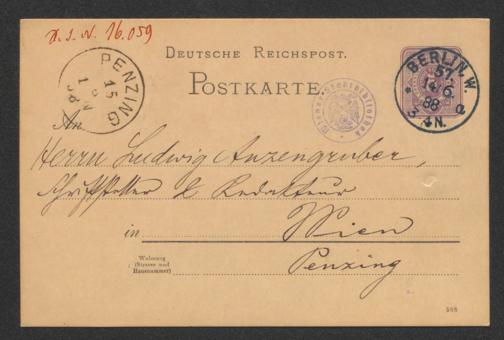 J. N. 16.059
PENZING
15
DEUTSCHE REICHSPOST.
POSTKARTE
Wiener Stadtbibliothek
BERLIN. W.
57
14/6.
88
3-4N.
a
An
Herrn Ludwig Anzengruber,
Schriftsteller & Redakteur
in Wien
Penzing
Wohnung
(Strasse und
Hausnummer)
588